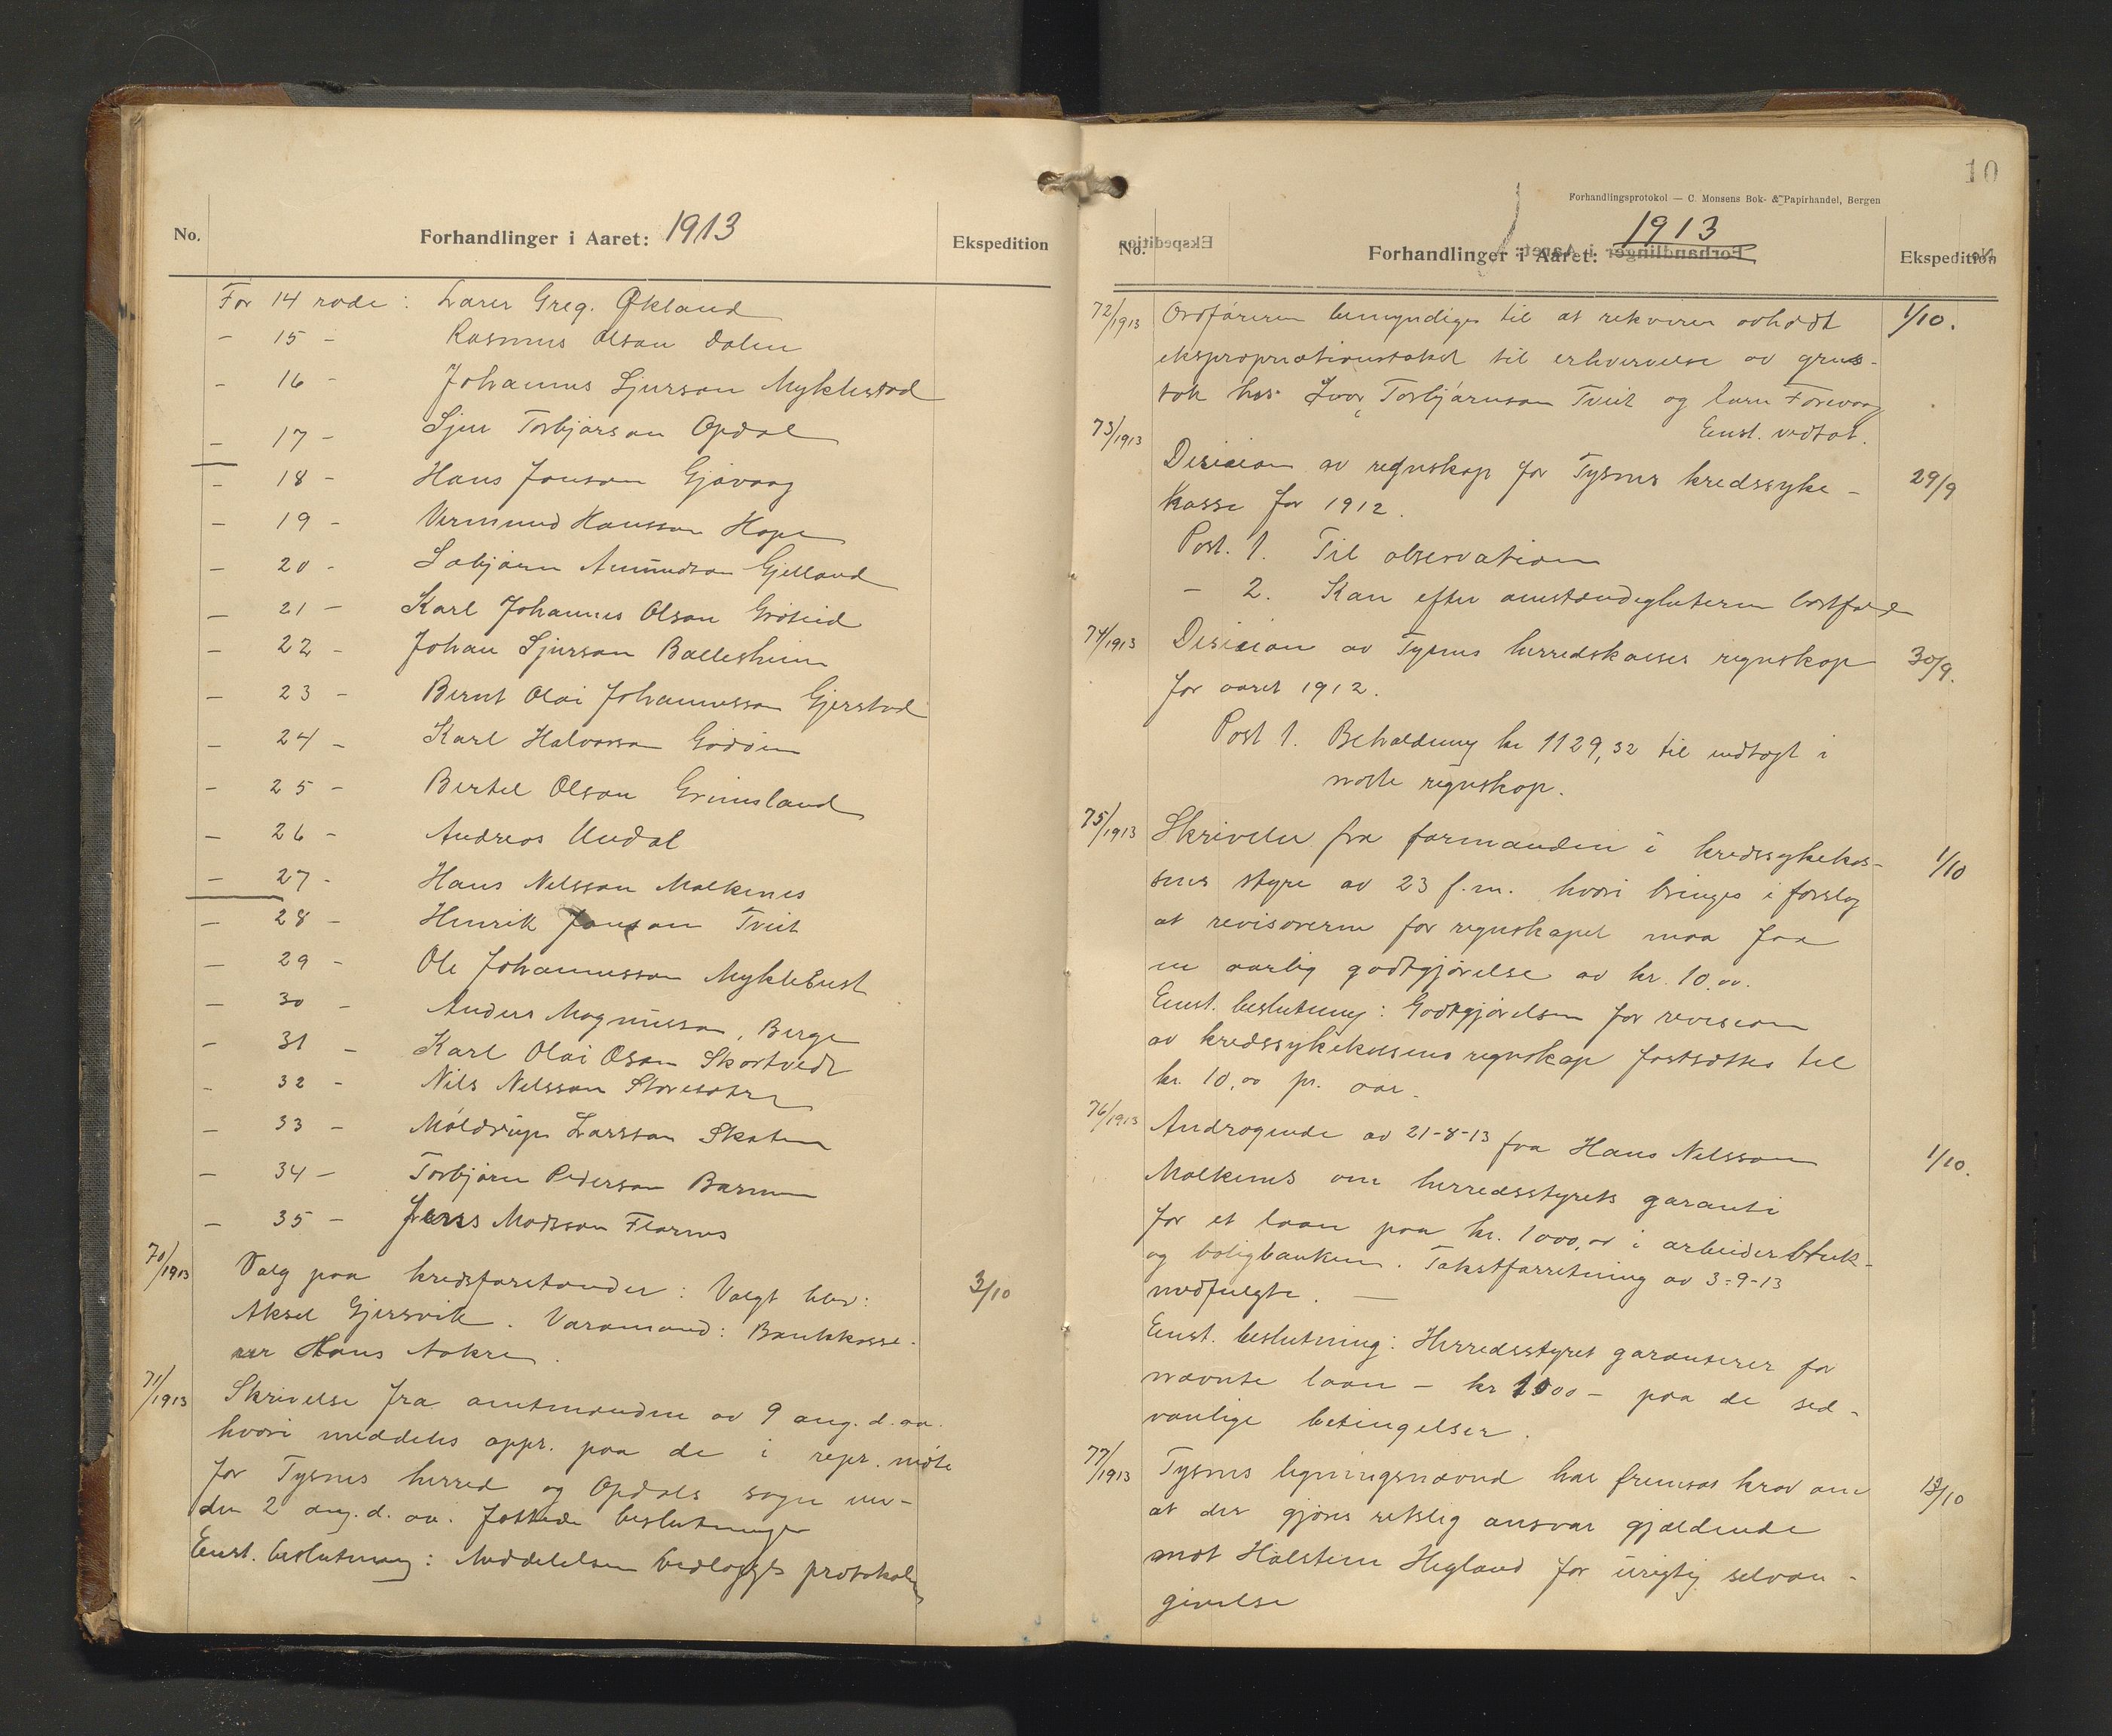 No.
Forhandlinger i Aaret: 1913
Ekspedition
For 14 rode: Lærer Greg. Økland
- 15 - Rasmus Olson Dalen
- 16 - Johannes Sjurson Myklestad
- 17 - Sjur Torbjørson Opdal
- 18 - Hans Jonson Gjøvaag
- 19 - Vermund Hansson Hope
- 20 - Amundson Gjelland
- 21 - Karl Johannes Olson Grøteid
- 22 - Johan Sjurson Ballesheim
- 23 - Bernt Olai Johannesson Gjerstad
- 24 - Karl Halvorson Godøen
- 25 - Bertel Olson Grimsland
- 26 - Andreas Undal
- 27 - Hans Nilsson Malkenes
- 28 - Henrik Jonson Tveit
- 29 - Ole Johannesson Myklebust
- 30 - Anders Magnusson, Berge
- 31 - Karl Olai Olson Skortvedt
- 32 - Nils Nilsson Storesætre
- 33 - Møldrup Larsson Skaten
- 34 - Torbjørn Pederson Barmen
- 35 - Jens Madsson Flornes
70/1913 Valg paa kredsforstander: Valgt blev: 3/10
Aksel Gjersvik. Varamand: Bankkasse-
rer Hans Aakre.
71/1913 Skrivelse fra amtmanden av 9 aug. d. aa.
hvori meddeles appr. paa de i repr. møte
for Tysnes herred og Opdals sogn un-
der 2 aug. d. aa. fattede beslutninger
Enst. beslutning: Meddelelsen vedlægges protokolen
10
Forhandlingsprotokol — C. Monsens Bok- & Papirhandel, Bergen
No.
Forhandlinger i Aaret: 1913
Ekspedition
72/1913 Ordføreren bemyndiges til at rekvirere avholdt 1/10.
ekspropriationstakst til erhvervelse av grus-
tak hos Ivar Torbjørnson Tveit og Forevaag
Enst. vedtat.
73/1913 Desision av regnskap for Tysnes kredssyke- 29/9
kasse for 1912.
Post. 1. Til observation
- 2. Kan efter omstændigheterne bortfalde
74/1913 Desision av Tysnes herredskasses regnskap 30/9.
for aaret 1912.
Post 1. Beholdning kr 1129,32 til indtægt i
næste regnskap.
75/1913 Skrivelse fra formanden i kredssykekas- 1/10
sens styre av 23 f.m. hvori bringes i forslag
at revisorerne for regnskapet maa faa
en aarlig godtgjørelse av kr. 10.00.
Enst. beslutning: Godtgjørelsen for revision
av kredssykekassens regnskap fastsættes til
kr. 10,00 pr. aar.
76/1913 Andragende av 21-8-13 fra Hans Nilsson 1/10.
Malkenes om herredsstyrets garanti
for et laan paa kr. 1000,00 i arbeiderbruk-
og boligbanken. Takstforretning av 3-9-13
medfulgte. —
Enst. beslutning: Herredsstyret garanterer for
nævnte laan - kr 1000 - paa de sed-
vanlige betingelser.
77/1913 Tysnes ligningsnævnd har fremsat krav om 13/10
at der gjøres retslig ansvar gjældende
mot Halstein Hegland for urigtig selvan-
givelse